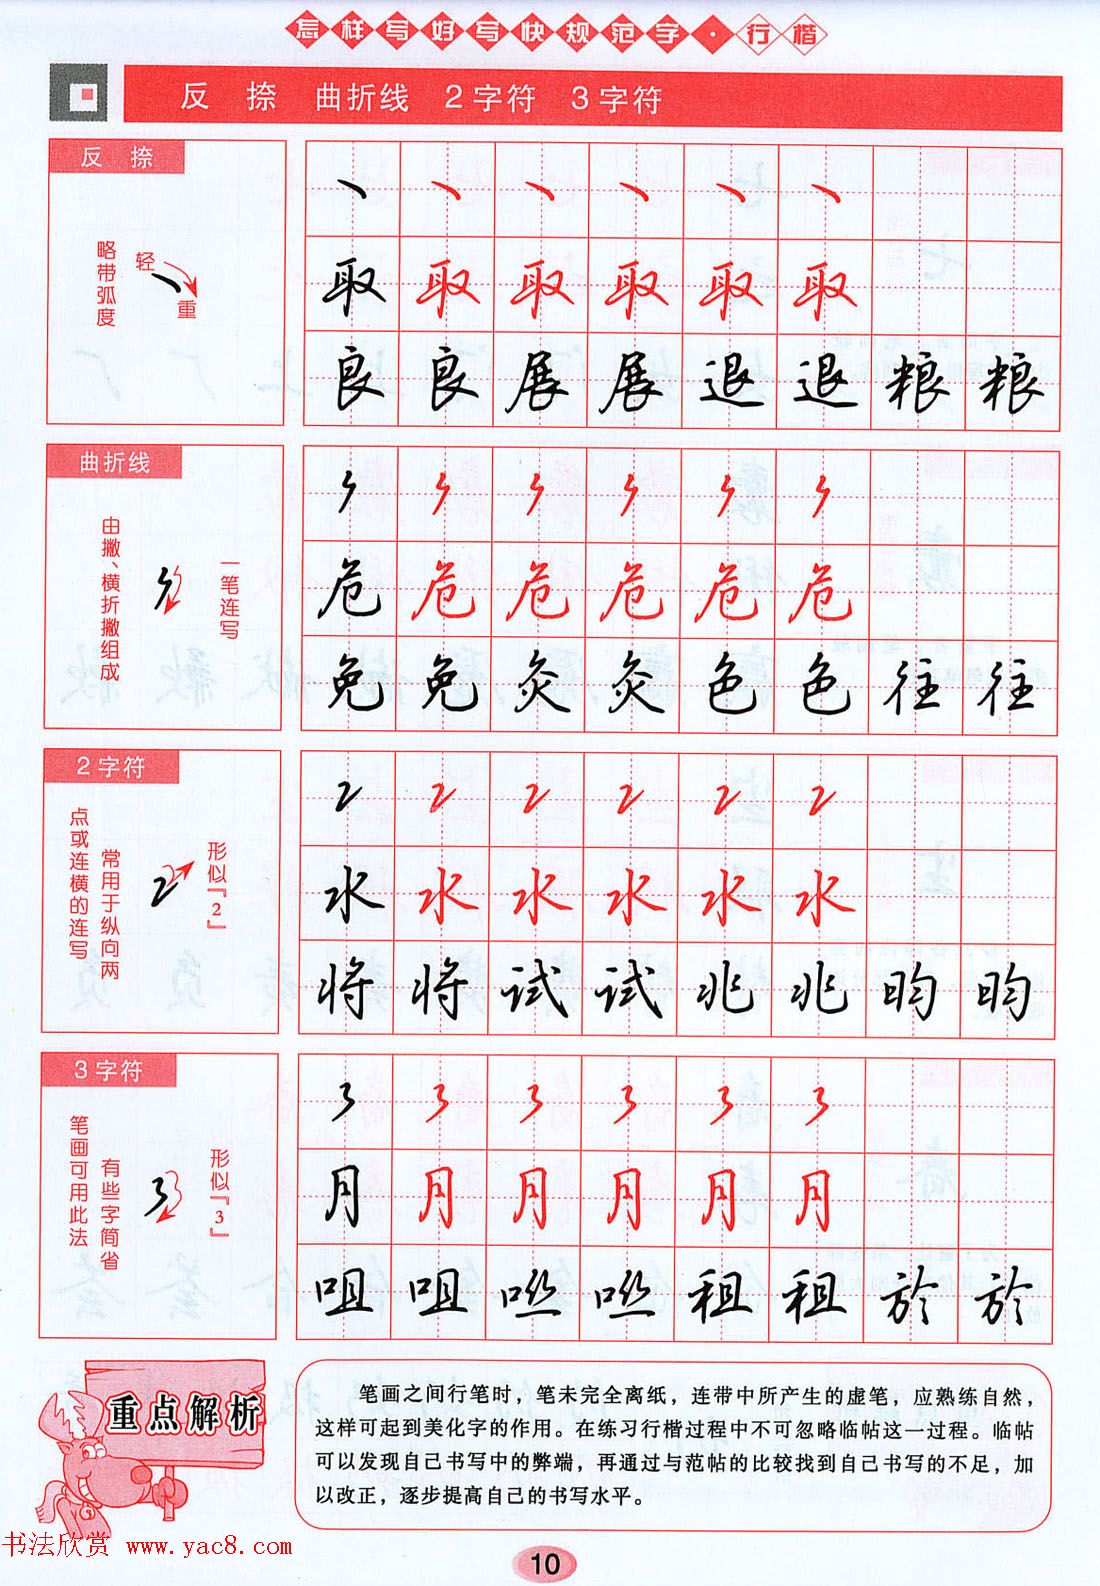 怎样写好写快规范字·行楷
反 捺 曲折线 2字符 3字符
反 捺
略带弧度
轻
重
丶 丶 丶 丶 丶 丶
取 取 取 取 取 取
良 良 展 展 退 退 粮 粮
曲折线
由撇、横折撇组成
一笔连写
危 危 危 危 危 危
免 免 灸 灸 色 色 往 往
2字符
形似『2』
常用于纵向两
点或连横的连写
2 2 2 2 2 2
水 水 水 水 水 水
将 将 试 试 兆 兆 昀 昀
3字符
形似『3』
有些字简省
笔画可用此法
3 3 3 3 3 3
月 月 月 月 月 月
咀 咀 咝 咝 租 租 於 於
重点解析
笔画之间行笔时，笔未完全离纸，连带中所产生的虚笔，应熟练自然，
这样可起到美化字的作用。在练习行楷过程中不可忽略临帖这一过程。临帖
可以发现自己书写中的弊端，再通过与范帖的比较找到自己书写的不足，加
以改正，逐步提高自己的书写水平。
书法欣赏 www.yac8.com
10